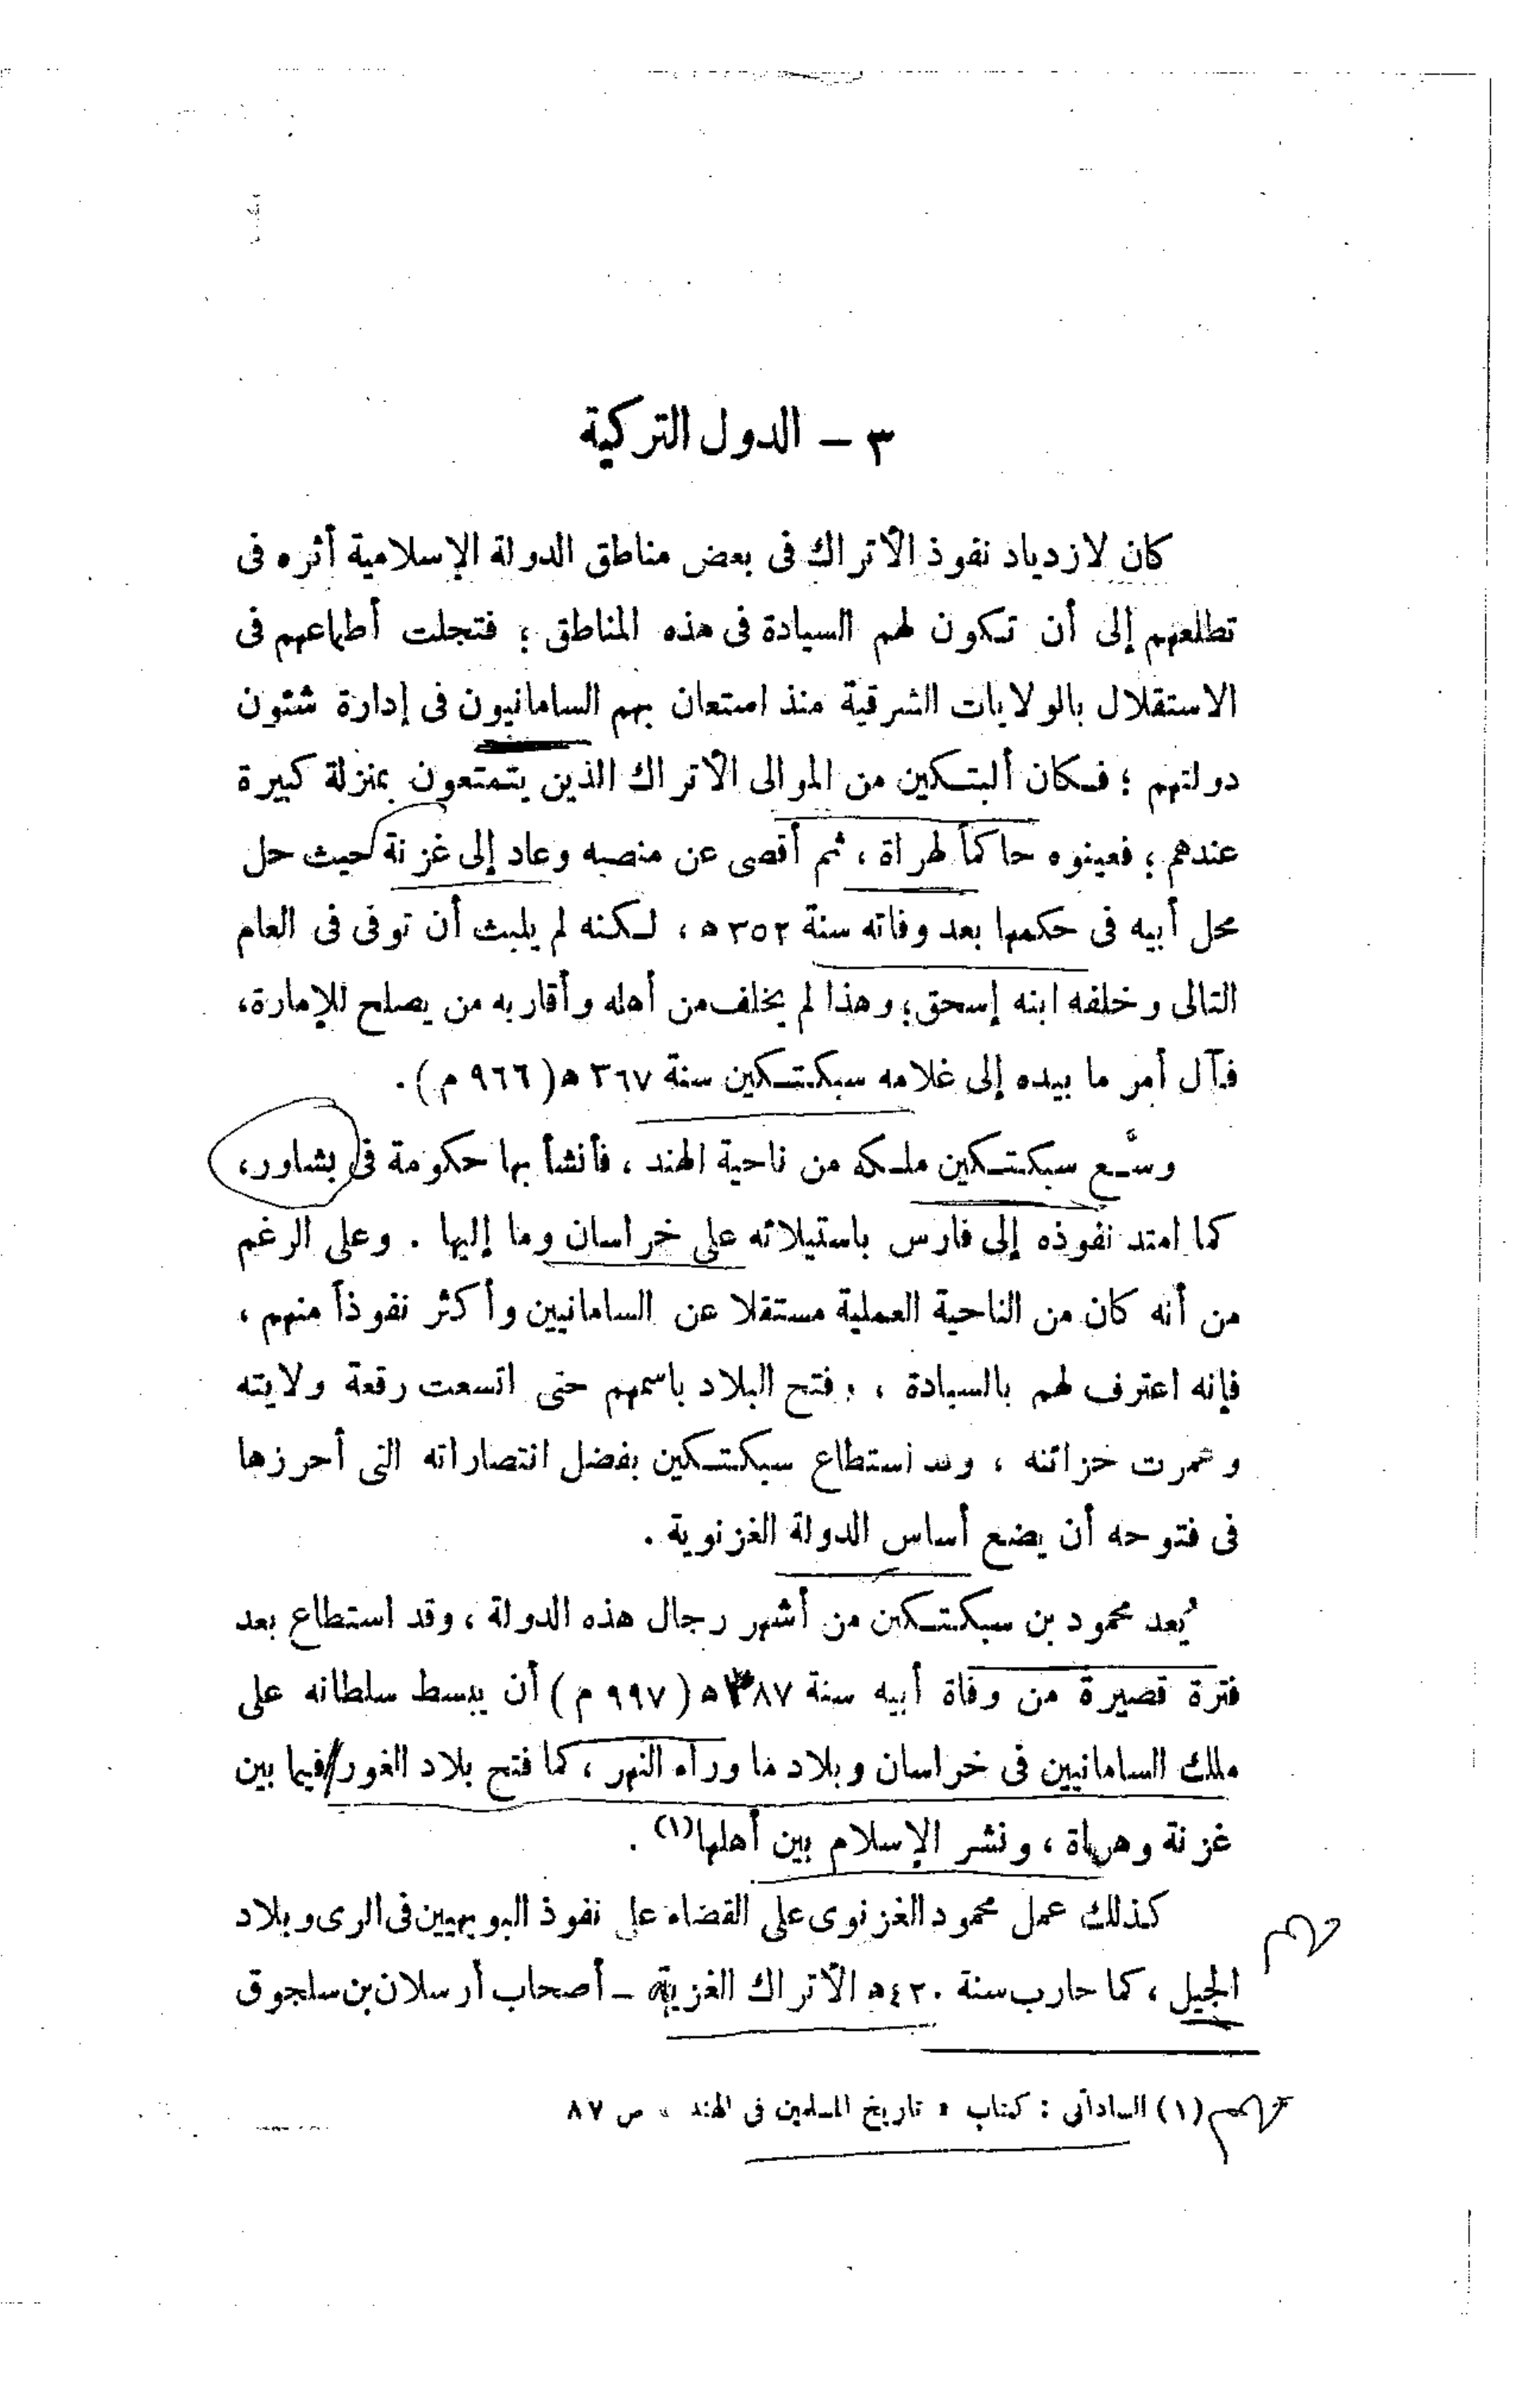 ٣ – الدول التركية
كان لازدياد نفوذ الأتراك فى بعض مناطق الدولة الإسلامية أثره فى
تطلعهم إلى أن تكون لهم السيادة فى هذه المناطق ؛ فتجلت أطماعهم فى
الاستقلال بالولايات الشرقية منذ استعان بهم السامانيون فى إدارة شئون
دولتهم ؛ فكان ألبتكين من الموالى الأتراك الذين يتمتعون بمنزلة كبيرة
عندهم ؛ فعينوه حاكماً لهراة ، ثم أقصى عن منصبه وعاد إلى غزنة حيث حل
محل أبيه فى حكمها بعد وفاته سنة ٣٥٢ ه ، لكنه لم يلبث أن توفى فى العام
التالى وخلفه ابنه إسحق ؛ وهذا لم يخلف من أهله وأقاربه من يصلح للإمارة،
فآل أمر ما بيده إلى غلامه سبكتكين سنة ٣٦٧ ه ( ٩٦٦ م ) .
وسَّع سبكتكين ملكه من ناحية الهند ، فأنشأ بها حكومة فى بشاور،
كما امتد نفوذه إلى فارس باستيلائه على خراسان وما إليها . وعلى الرغم
من أنه كان من الناحية العملية مستقلا عن السامانيين وأكثر نفوذاً منهم ،
فإنه اعترف لهم بالسيادة ، وفتح البلاد باسمهم حتى اتسعت رقعة ولايته
وعمرت خزائنه ، وقد استطاع سبكتكين بفضل انتصاراته التى أحرزها
فى فتوحه أن يضع أساس الدولة الغزنوية .
يُعد محمود بن سبكتكين من أشهر رجال هذه الدولة ، وقد استطاع بعد
فترة قصيرة من وفاة أبيه سنة ٣٨٧ ه ( ٩٩٧ م ) أن يبسط سلطانه على
ملك السامانيين فى خراسان وبلاد ما وراء النهر ، كما فتح بلاد الغور فيما بين
غزنة وهراة ، ونشر الإسلام بين أهلها(١) .
كذلك عمل محمود الغزنوى على القضاء على نفوذ البويهيين فى الرى وبلاد
الجبل ، كما حارب سنة ٤٢٠ه الأتراك الغزية – أصحاب أرسلان بن سلجوق
(١) الساداتى : كتاب « تاريخ المسلمين فى الهند » ص ٨٧